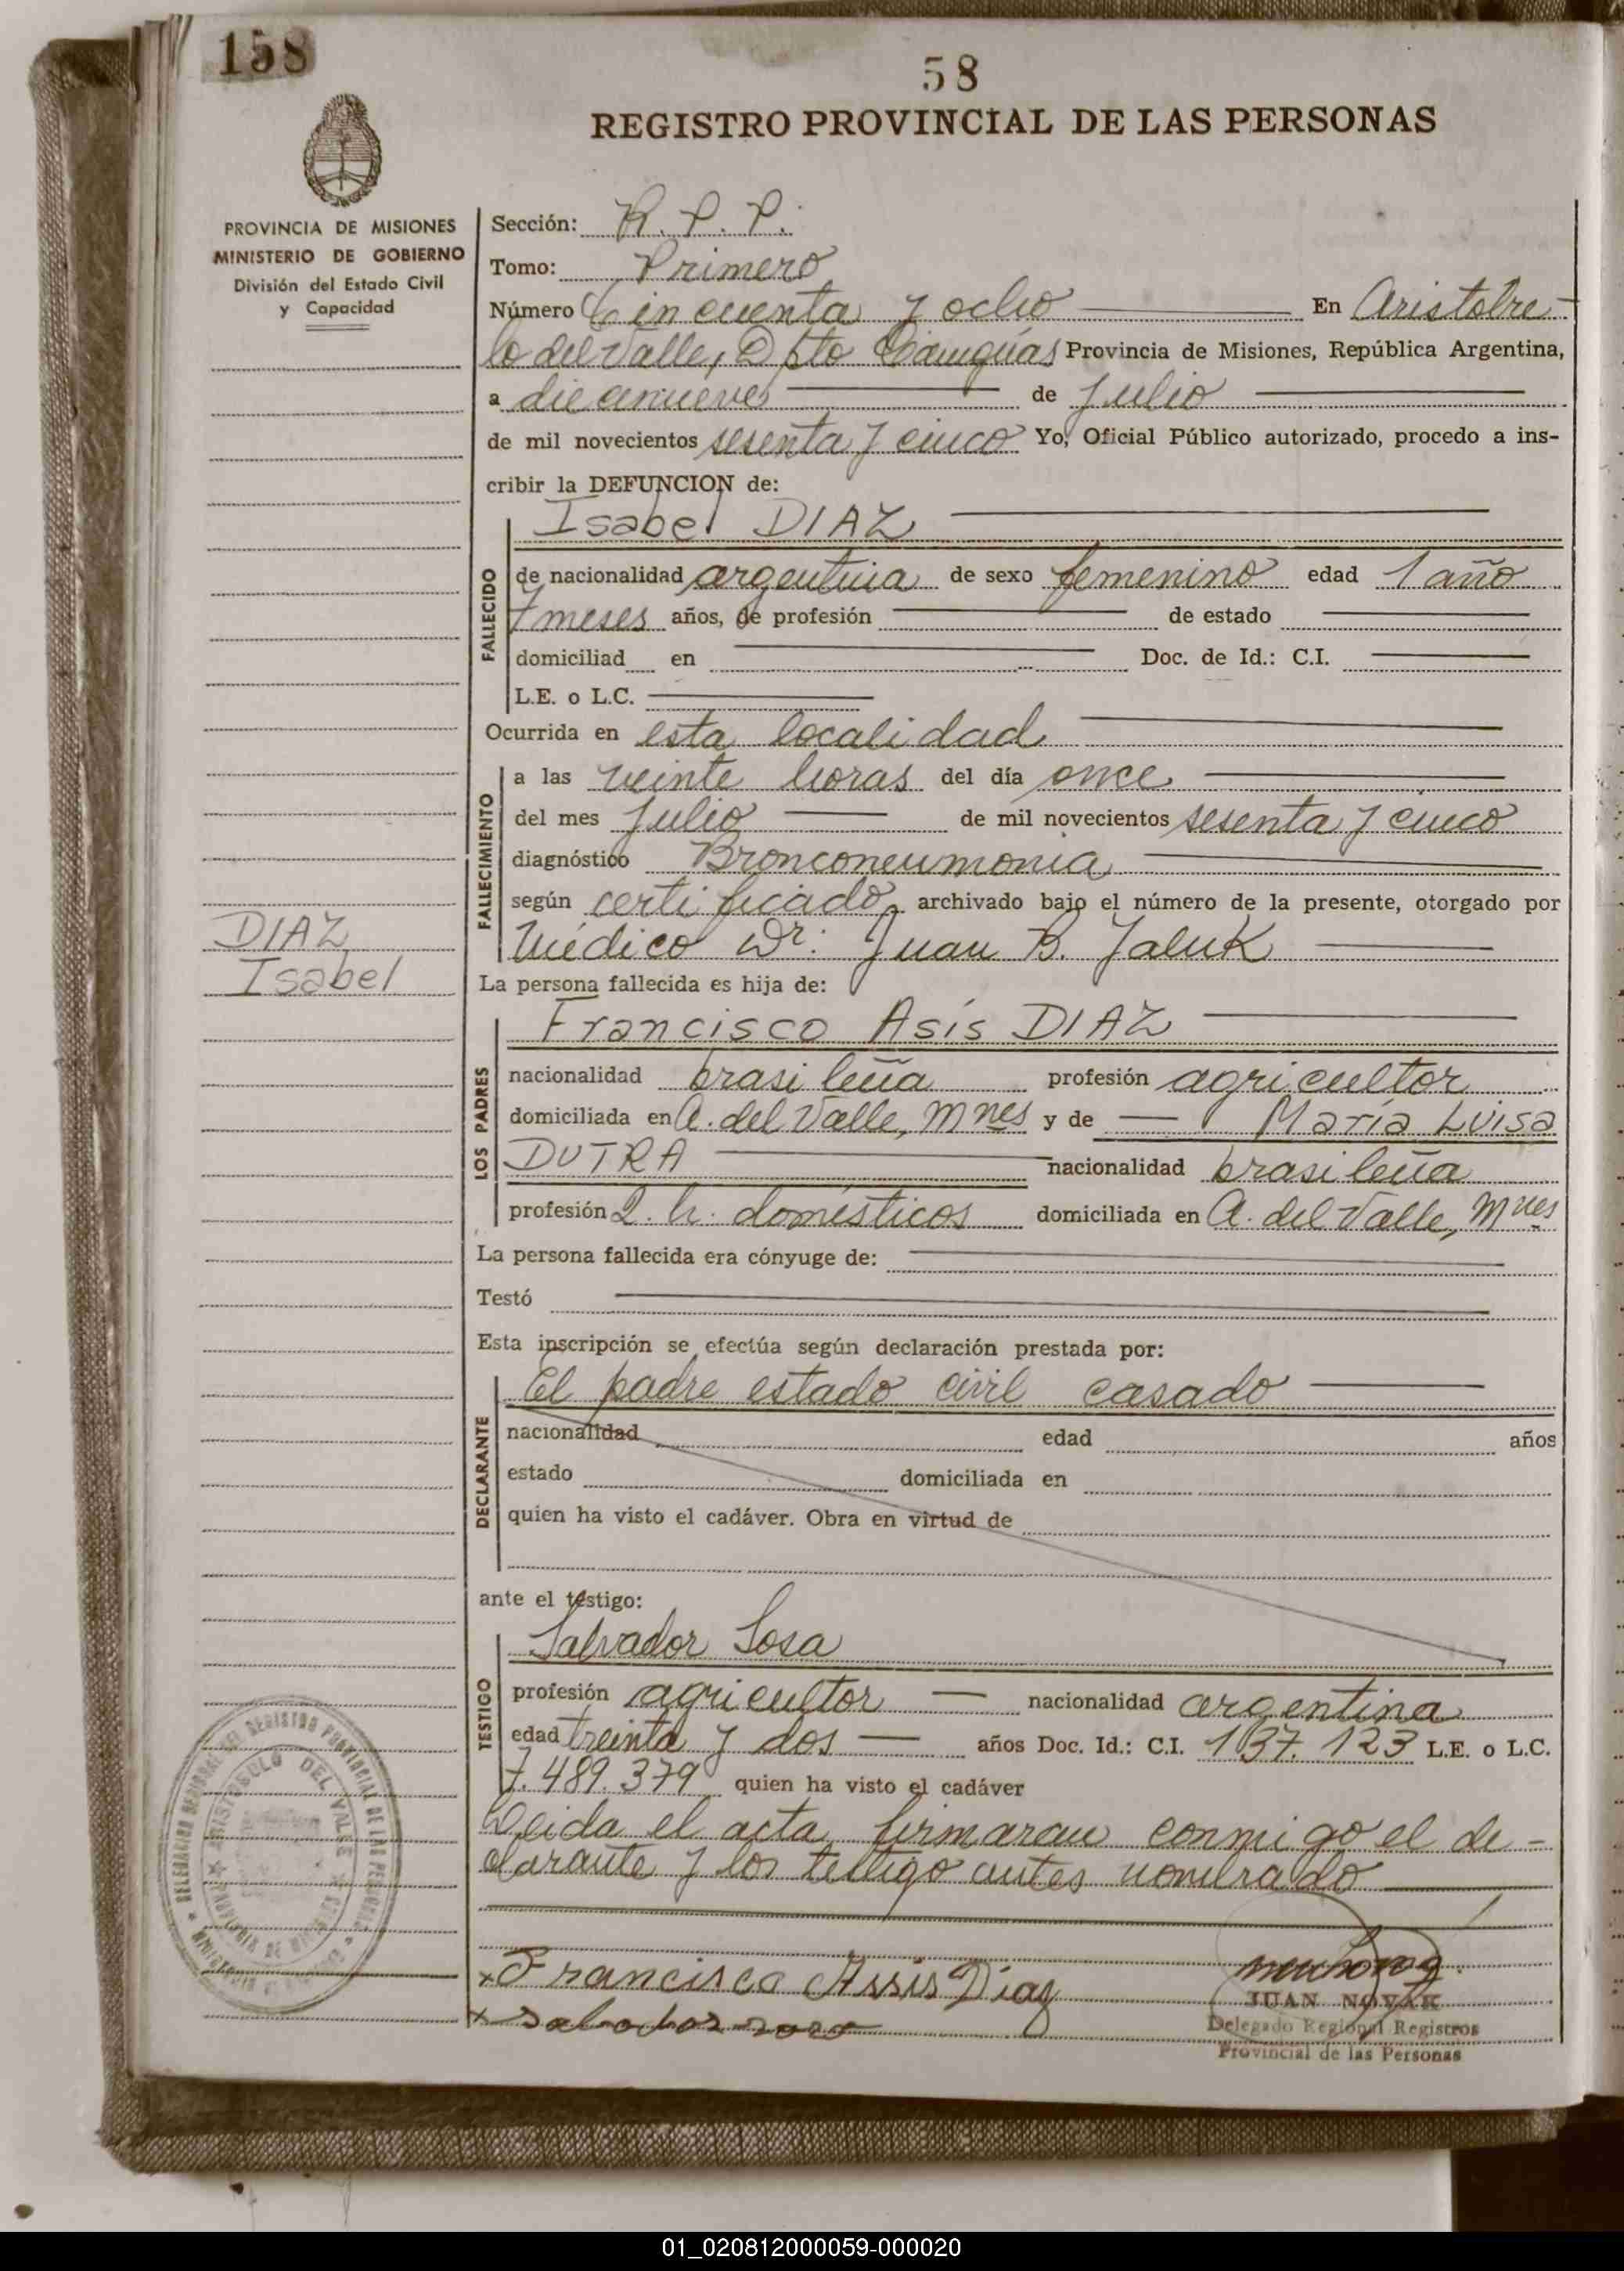 158
58
REGISTRO PROVINCIAL DE LAS PERSONAS
PROVINCIA DE MISIONES
MINISTERIO DE GOBIERNO
División del Estado Civil
y Capacidad
Sección: R. P. P.
Tomo: Primero
Número Cincuenta y ocho En Aristobu-
lo del Valle, Dpto Cainguás Provincia de Misiones, República Argentina,
a diecinueve de Julio
de mil novecientos sesenta y cinco Yo, Oficial Público autorizado, procedo a ins-
cribir la DEFUNCION de:
Isabel DIAZ
FALLECIDO
de nacionalidad argentina de sexo femenino edad 1 año
7 meses años, de profesión de estado
domiciliad en Doc. de Id.: C.I.
L.E. o L.C.
Ocurrida en esta localidad
FALLECIMIENTO
a las veinte horas del día once
del mes Julio de mil novecientos sesenta y cinco
diagnóstico Bronconeumonia
según certificado archivado bajo el número de la presente, otorgado por
Médico Dr: Juan B. Jaluk
DIAZ
Isabel
La persona fallecida es hija de:
LOS PADRES
Francisco Asís DIAZ
nacionalidad brasileña profesión agricultor
domiciliada en A. del Valle, Mnes y de María Luisa
DUTRA nacionalidad brasileña
profesión Q. h. domésticos domiciliada en A. del Valle, Mnes
La persona fallecida era cónyuge de:
Testó
Esta inscripción se efectúa según declaración prestada por:
DECLARANTE
El padre estado civil casado
nacionalidad edad años
estado domiciliada en
quien ha visto el cadáver. Obra en virtud de
ante el testigo:
TESTIGO
Salvador Sosa
profesión agricultor nacionalidad argentina
edad treinta y dos años Doc. Id.: C.I. 137.123 L.E. o L.C.
7.489.379 quien ha visto el cadáver
Leida el acta, firmaran conmigo el de-
clarante y los testigo antes nombrado
Francisco Assis Diaz
JUAN NOVAK
Delegado Regional Registros
Provincial de las Personas
ARISTOBULO DEL VALLE
01_020812000059-000020